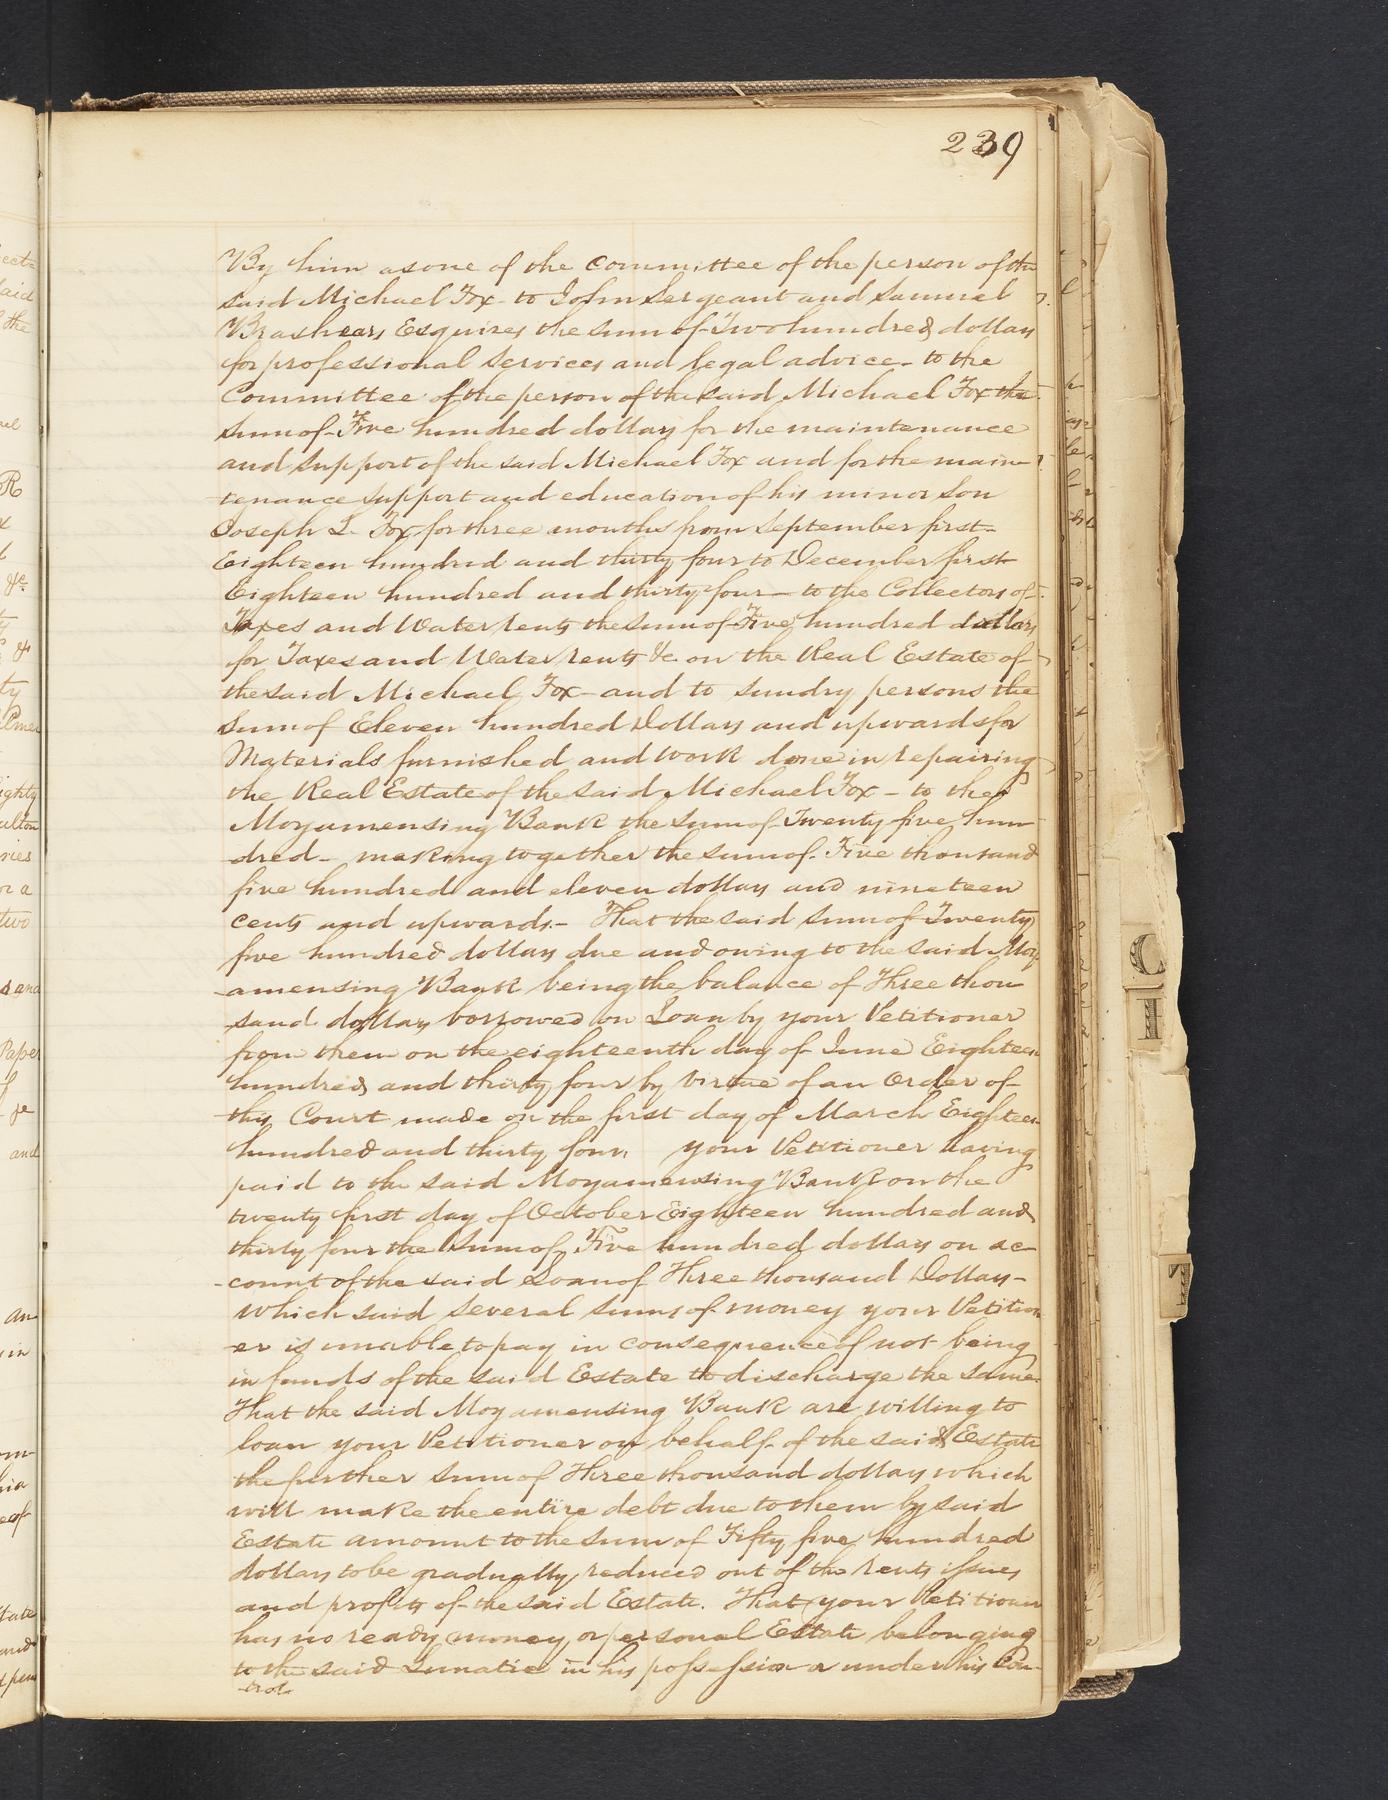 239
By him as one of the Committee of the person of the
said Michael Fox - to John Sergeant and Samuel
Brashears Esquires the sum of Two hundred dollars
for professional services and legal advice - to the
Committee of the person of the said Michael Fox the
sum of Five hundred dollars for the maintenance
and support of the said Michael Fox and for the main
tenance support and education of his minor son
Joseph L. Fox for three months from September first-
Eighteen hundred and thirty four to December first
Eighteen hundred and thirty four - to the Collectors of
Taxes and Water rents the sum of Five hundred dollars
for Taxes and Water rents &c on the Real Estate of
the said Michael Fox - and to sundry persons the
sum of Eleven hundred Dollars and upwards for
Materials furnished and work done in repairing
the Real Estate of the said Michael Fox - to the
Moyamensing Bank the sum of Twenty five hun
dred - making together the sum of Five thousand
five hundred and eleven dollars and nineteen
cents and upwards - That the said sum of Twenty
five hundred dollars due and owing to the said Moy
amensing Bank being the balance of Three thou
sand dollars borrowed on Loan by your Petitioner
from them on the eighteenth day of June Eighteen
hundred and thirty four by virtue of an Order of
this Court made on the first day of March Eighteen
hundred and thirty four, your Petitioner having
paid to the said Moyamensing Bank on the
twenty first day of October Eighteen hundred and
thirty four the sum of Five hundred dollars on ac-
count of the said Loan of Three thousand Dollars -
Which said several sums of money your Petition
er is unable to pay in consequence of not being
in funds of the said Estate to discharge the same.
That the said Moyamensing Bank are willing to
loan your Petitioner on behalf of the said Estate
the further sum of Three thousand dollars which
will make the entire debt due to them by said
Estate amount to the sum of Fifty five hundred
dollars to be gradually reduced out of the rents issues
and profits of the said Estate. That your Petitioner
has no ready money or personal Estate belonging
to the said Lunatic in his possession or under his Con-
trol